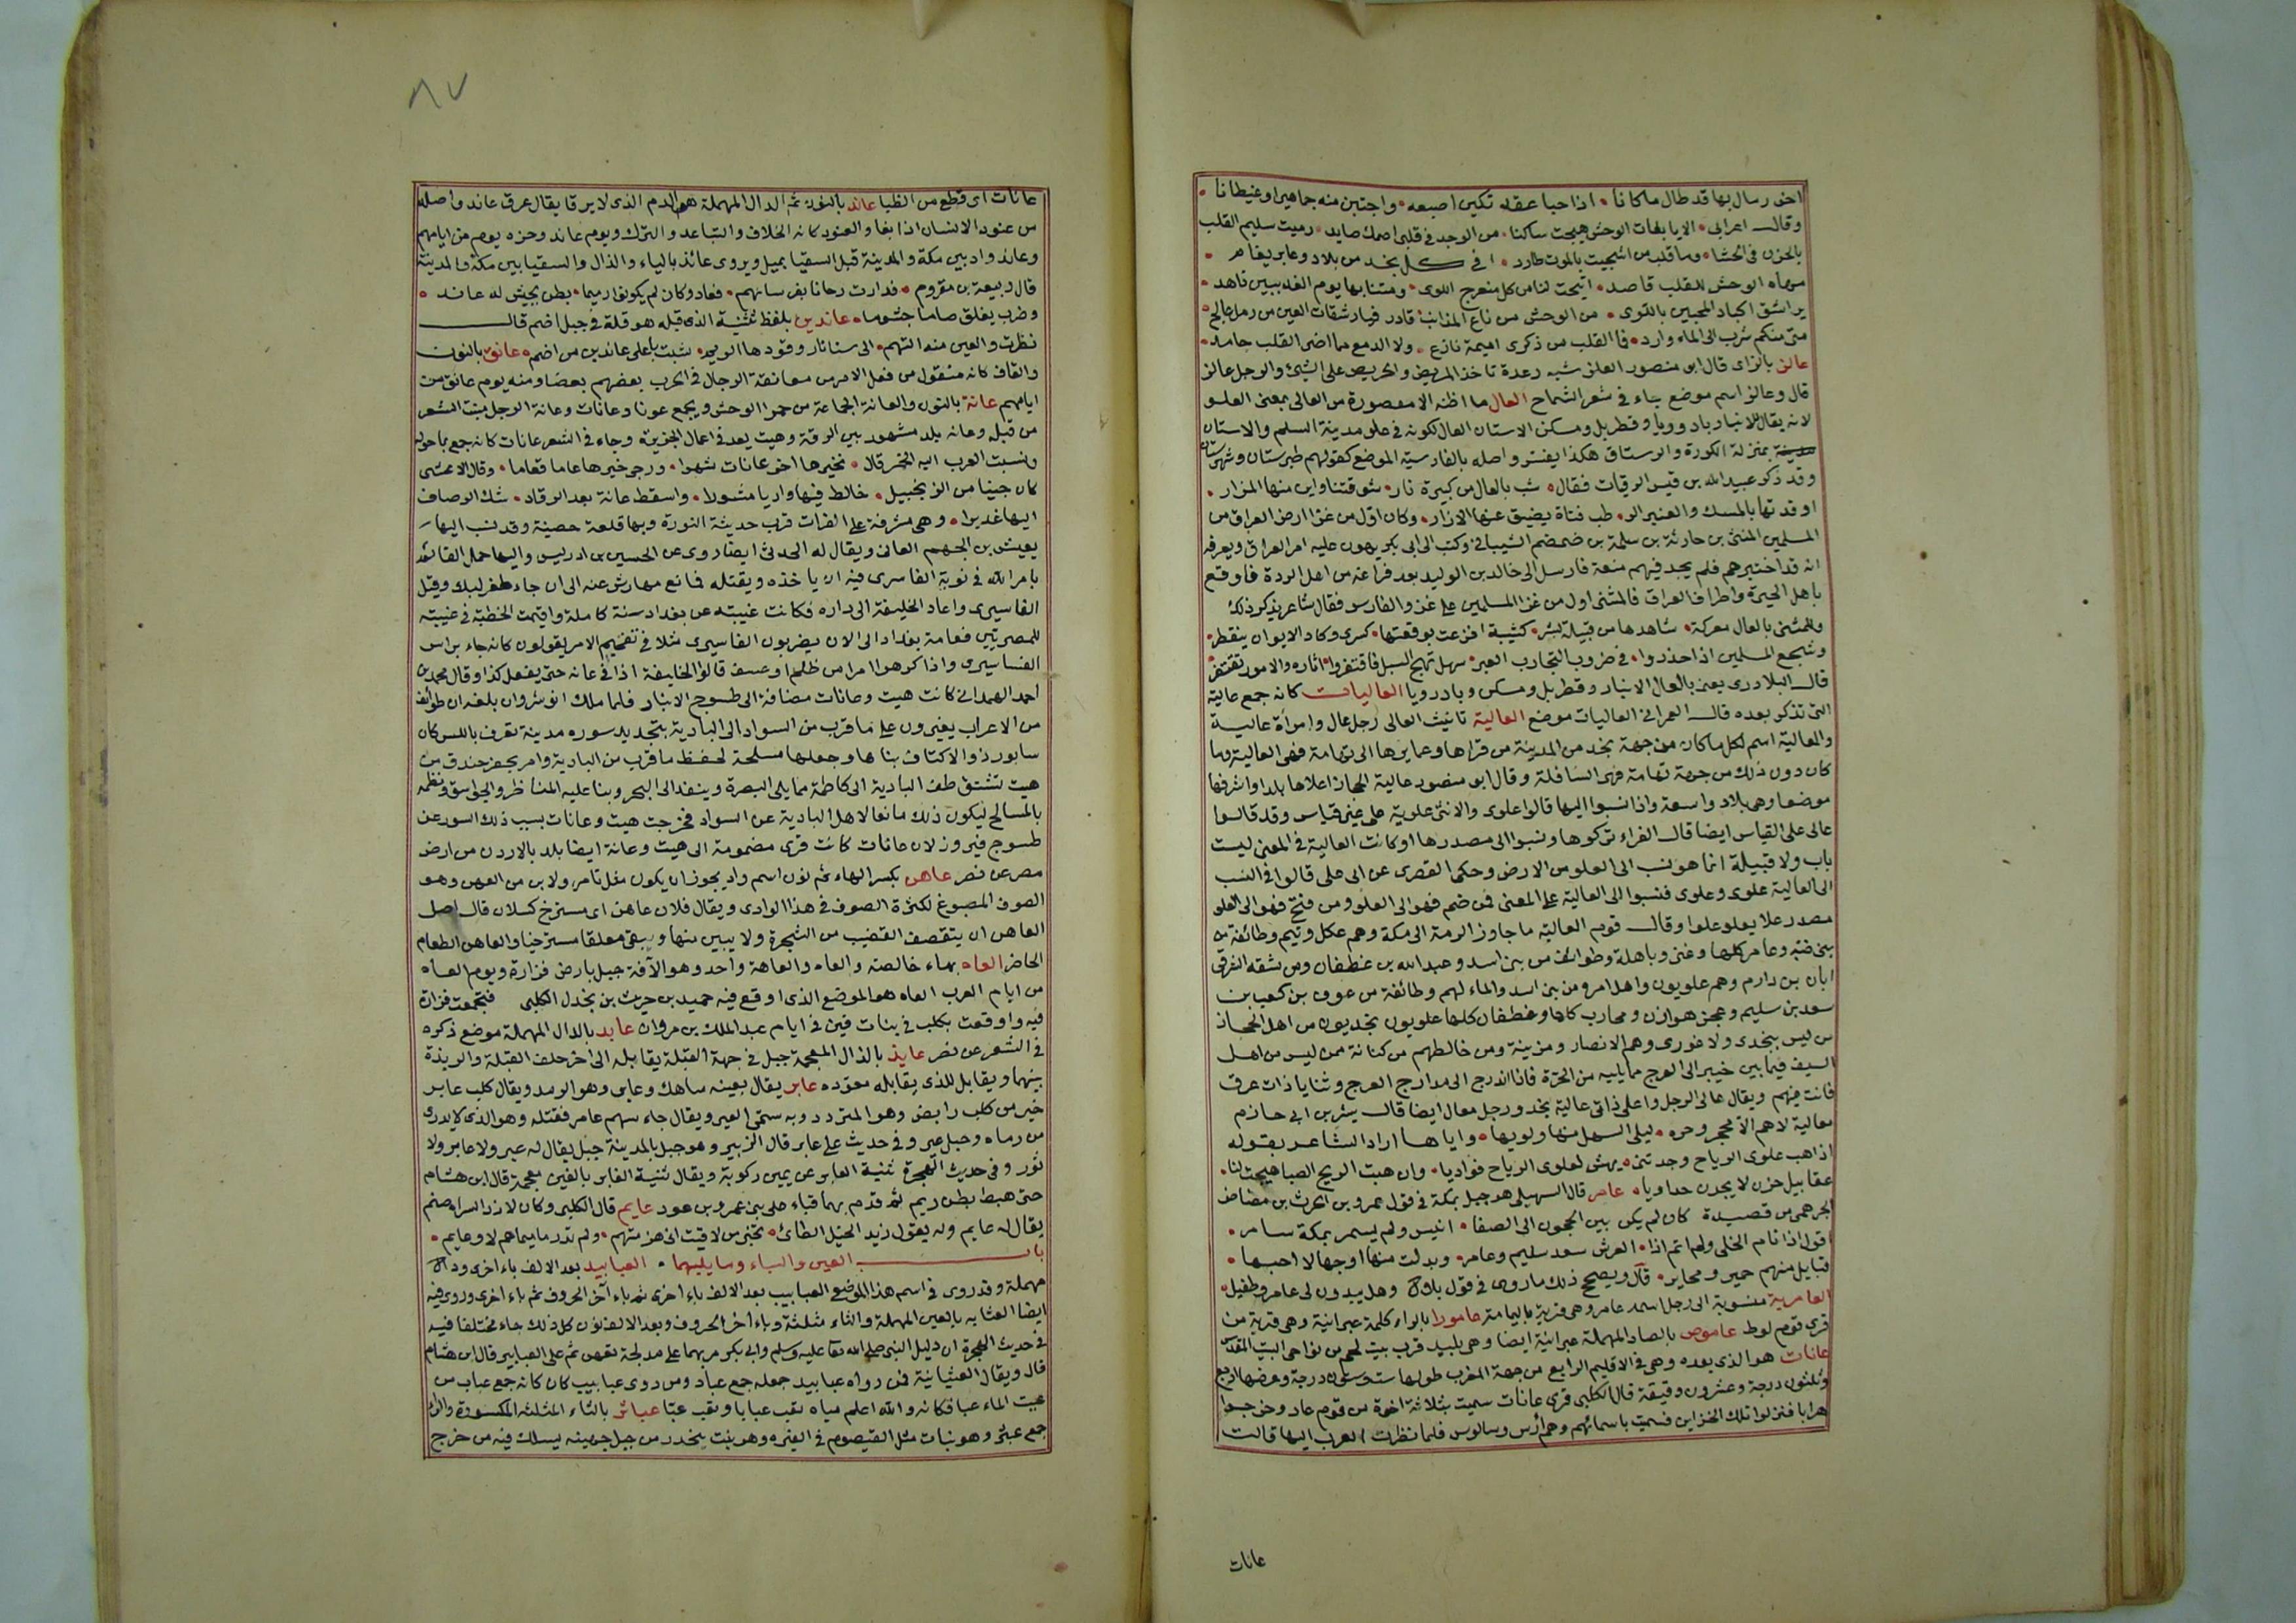 اخو رسال بها قد طال ما كانا • اذا حبا عقله تكبن اصبعه • واجتبن منه جماهيرا وغيطانا •
وقال اعرابى • الا يا بغاث الوحش هيجت ساكنا • من الوجد فى قلبى اصمك صايد • رميت سليم القلب
بالحزن فى الحشا • وما قلب من اشجيت بالموت طارد • افى كل نجد من بلاد وعابر بغام •
مهاة الوحش للقلب قاصد • اتيحت لنا من كل منعرج اللوى •
متى منكم شرب الى الماء وارد • فا القلب من ذكرى اميمة نازع • ولا الدمع مما اضر القلب جامد •
عالز بالزاى قال ابو منصور العلز شبه رعدة تاخذ المريض والحريص على الشئ والرجل عالز
قال وعالز اسم موضع جاء فى شعر الشماخ العال ما اظنه الا مقصورة من العالى بمعنى العلو
لانه يقال للانبار وبادوريا وقطربل ومسكن الاستان العال لكونه فى علو مدينة السلم والاستان
بمنزلة الكورة والرستاق هكذا يفسر واصله بالفارسية الموضع كقولهم طبرستان وشهرستان
وقد ذكر عبيد الله بن قيس الرقيات فقال • شب بالعال من كبيرة نار • شوقتنا واين منها المزار •
اوقدتها بالمسك والعنبر الر • طب فتاة يضيق عنها الازار • وكان اول من غزا ارض العراق من
المسلمين المثنى بن حارثة بن سلمة بن ضمضم الشيبانى وكتب الى ابى بكر يهون عليه امر العراق ويعرفه
انه قد اختبرهم فلم يجد فيهم منعة فارسل الى خالد بن الوليد بعد فراغه من اهل الردة فاوقع
باهل الحيرة واطراف العراق فالمثنى اول من غزا المسلمين على غزو الفارس فقال شاعر يذكر ذلك
وللمثنى بالعال معركة • شاهدها من قبيلة بشر • كتيبة افزعت بوقعتها • كسرى وكاد الايوان ينفطر •
وشجع المسلمين اذا حذروا • فى ضروب التجارب العبر • سهل نهج السبل فاقتفروا • اثاره والامور تقتفر •
قال البلادرى يعنى بالعال الانبار وقطربل ومسكن وبادرويا العاليات كانه جمع عالية
التى تذكر بعده قال العمرانى العاليات موضع العالية تانيث العالى رجل عال وامراة عالية
والعالية اسم لكل ما كان من جهة نجد من المدينة من قراها وعمايرها الى تهامة فهى العالية وما
كان دون ذلك من جهة تهامة فهى السافلة وقال ابو منصور عالية الحجاز اعلاها بلدا واشرفها
موضعا وهى بلاد واسعة واذا نسبوا اليها قالوا علوى والانثى علوية على غير قياس وقد قالوا
عالى على القياس ايضا قال الفراء تركوها ونسبوا الى مصدرها او كانت العالية فى المعنى ليست
باب ولا قبيلة انما هو نسب الى العلو من الارض وحكى القصرى عن ابى على قالوا فى النسب
الى العالية علوى وعلوى فنسبوا الى العالية على المعنى فمن ضم فهو الى العلو ومن فتح فهو الى العلو
مصدر علا يعلو علوا وقال قوم العالية ما جاوز الرمة الى مكة وهم عكل وتيم وطائفة من
بنى ضبة وعامر كلها وغنى وباهلة وطوائف من بنى اسد وعبد الله بن غطفان ومن شقه الشرقى
ابان بن دارم وهم علويون واهل امرة من بنى اسد والماء لهم وطائفة من عوف بن كعب بن
سعد بن سليم وعجز هوازن ومحارب كلها وغطفان كلها علويون نجديون من اهل الحجاز
من ليس بنجدى ولا غورى وهم الانصار ومزينة ومن خالطهم من كنانة ممن ليس من اهل
السيف فيما بين خيبر الى العرج مما يليه من الحرة فاذا اندرج الى مدارج العرج وثنايا ذات عرق
فانت فيهم ويقال عالى الرجل واعلى ذا اتى عالية نجد ورجل معال ايضا قال بشر بن ابى حازم
معالية لا هم الا محجر وحره • ليلى السهل منها ولوبها • واياها اراد الشاعر بقوله
اذا هب علوى الرياح وجدتنى • يهش لعلوى الرياح فواديا • وان هبت الريح الصبا هيجت لنا •
عقابيل حزن لا يجدن مداويا • عامر قال السهيلى هو جبل بمكة فى قول عمرو بن الحرث بن مضاض
الجرهمى من قصيدة كان لم يكن بين الحجون الى الصفا • انيس ولم يسمر بمكة سامر •
اقول اذا نام الخلى ولم انم اذا • العرش سعد سليم وعامر • وبدلت منها اوجها لا احبها •
قبايل منهم حمير ومحاير • قال ويصحح ذلك ما روى فى قول بلال • وهل يبدون لى عامر وطفيل •
العامرية منسوبة الى رجل اسمه عامر وهى قرية باليمامة عامورا بالراء كلمة عبرانية وهى قرية من
قرى قوم لوط عاموص بالصاد المهملة عبرانية ايضا وهى بليد قرب بيت لحم من نواحى البيت المقدس
عانات هو الذى بعده وهى فى الاقليم الرابع من جهة المغرب طولها ست وستون درجة وعرضها اربع
وثلثون درجة وعشرون دقيقة قال الكلبى قرى عانات سميت بثلاثة اخوة من قوم عاد وخرجوا
هرابا فنزلوا تلك الجزاير فسميت باسمائهم وهم اؤس وسالوس فلما نظرت العرب اليها قالت
عانات
٨٧
عانات اى قطع من الظبا عاند بالنون ثم الدال المهملة هو الدم الذى لا يرقا يقال عرق عاند واصله
من عنود الانسان اذا بغا والعنود كانه الخلاف والتباعد والترك ويوم عاند وحزه يوم من ايامهم
وعاند واد بين مكة والمدينة قبل السقيا بميل ويروى عائذ بالياء والذال والسقيا بين مكة والمدينة
قال ربيعة بن مقروم • فدارت رحانا بفرسانهم • فعاد وكان لم يكونوا رميما • بطن يجيش له عاند •
وضرب يفلق هاما جثوما • عاندين بلفظ تثنية الذى قبله هو قلة فى جبل اضم قال
نظرت والعين منه التهم • الى سنا نار وقودها الريم • شبت باعلى عاندين من اضم • عانق بالنون
والقاف كانه منقول من فعل الامر من معانقة الرجال فى الحرب بعضهم بعضا ومنه يوم عانق من
ايامهم عانة بالنون والعانة الجماعة من حمر الوحش ويجمع عونا وعانات وعانة الرجل منبت الشعر
من قبله وعانة بلد مشهور بين الرقة وهيت يعد فى اعمال الجزيرة وجاء فى الشعر عانات كانه جمع بما حوله
ونسبت العرب اليه الخمر قال • تخيرها اخو عانات شهرا • ورجى خيرها عاما فعاما • وقال الاعشى
كان جنيا من الزنجبيل • خالط فيها واريا مشورا • واسفط عانة بعد الرقاد • شك الرصاف
اليها غديرا • وهى مشرفة على الفرات قرب حديثة النورة وبها قلعة حصينة وقد نسب اليها
يعيش بن الجهم العانى ويقال له الحدثى ايضا روى عن الحسين بن ادريس واليها حمل القائم
بامر الله فى نوبة الفاسرى فيه ان ياخذه ويقتله فمانع مهارش عنه الى ان جاء طغرلبك وقتل
الفاسيرى واعاد الخليفة الى داره فكانت غيبته عن بغداد سنة كاملة واقيمت الخطبة فى غيبته
للمصريين فعامة بغداد الى الان يضربون الفاسيرى مثلا فى تفخيم الامر يقولون كانه جاء براس
الفساسيرى واذا كرهوا امرا من ظلم او عسف قالوا الخليفة اذا فى عانه حتى يفعل كذا وقال محمد بن
احمد الهمدانى كانت هيت وعانات مضافة الى طسوج الانبار فلما ملك انوشروان بلغه ان طوائف
من الاعراب يغيرون على ما قرب من السواد الى البادية بتجديد سوره مدينة تعرف بالس كان
سابور ذو الاكتاف بناها وجعلها مسلحة لحفظ ما قرب من البادية وامر بحفر خندق من
هيت تشتق طف البادية الى كاظمة مما يلى البصرة وينفذ الى البحر وبنا عليه المناظر والجواسق ونظمه
بالمسالح ليكون ذلك مانعا لاهل البادية عن السواد فخرجت هيت وعانات بسبب ذلك السور عن
طسوج فيروز لان عانات كانت قرى مضمومة الى هيت وعانة ايضا بلد بالاردن من ارض
مصر عن نصر عاهن بكسر الهاء ثم نون اسم واد يجوز ان يكون مثل تامر ولابن من العهن وهو
الصوف المصبوغ لكثرة الصوف فى هذا الوادى ويقال فلان عاهن اى مسترخ كسلان قال اصل
العاهن ان يتقصف القضيب من الشجرة ولا يبين منها ويبقى معلقا مسترخيا والعاهن الطعام
الحاضر العاه بهاء خالصة والعاه والعاهة واحد وهو الآفة جبل بارض فزارة ويوم العاه
من ايام العرب العاه هو الموضع الذى اوقع فيه حميد بن حريث بن بحدل الكلبى فتجمعت فزارة
فيه واوقعت بكلب فى بنات قين فى ايام عبد الملك بن مروان عابد بالدال المهملة موضع ذكره
فى الشعر عن نصر عايذ بالذال المعجمة جبل فى جهة القبلة يقابله الى اخر خلف القبلة والربذة
بينهما ويقابل للذى يقابله معوده عاير يقال بعينه ساهك وعاير وهو الرمد ويقال كلب عاير
خير من كلب رابض وهو المتردد وبه سمى العير ويقال جاء سهم عاير فقتله وهو الذى لا يدرى
من رماه وجبل عير وفى حديث على عاير قال الزبير وهو جبل بالمدينة جبل يقال له عير ولا عاير ولا
ثور وفى حديث الهجرة ثنية العاير عن يمين ركوبة ويقال ثنية الغابر بالغين معجمة قال ابن هشام
حتى هبط بطن ريم ثم قدم بهما قباء على بنى عمرو بن عوف عايم قال الكلبى وكان لازد السراه صنم
يقال له عايم وله يقول زيد الخيل الطائى • تخبر من لاقيت انى هزمتهم • ولم تدر ما سيماهم لا وعايم •
باب العين والباء وما يليهما • العبابيد بعد الالف باء اخرى ودال
مهملة وقد روى فى اسم هذا الموضع العبابيب بعد الالف باء اخرى ثم ياء آخر الحروف ثم باء اخرى وروى فيه
ايضا العثيانه بالعين المهملة والثاء مثلثة وياء آخر الحروف وبعد الالف نون كل ذلك جاء مختلفا فيه
فى حديث الهجرة ان دليل النبى صلى الله تعا عليه وسلم وابى بكر مر بهما على مدلجة تعهن ثم على العبابيد قال ابن هشام
قال ويقال العثيانية فمن رواه عبابيد جعله جمع عباد ومن روى عبابيب كان كانه جمع عباب من
عبيت الماء عبا فكانه والله اعلم مياه تعب عبابا وتعب عبا عباثر بالثاء المثلثة المكسورة والراء
جمع عبثر وهو نبات مثل القيصوم فى الغبرة وهو نبت ينحدر من جبل جهينة يسلك فيه من خرج